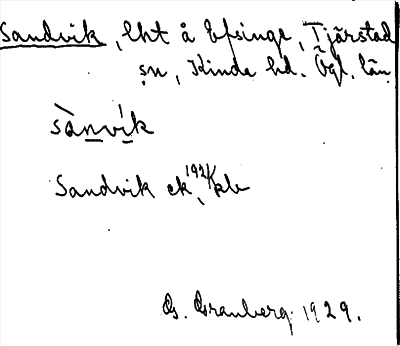 Sandvik, lht å Efsinge, Tjärstad
sn, Kinda hd. Ögl. län
sànvík
Sandvik ek 1921/kb
G. Granberg 1929.